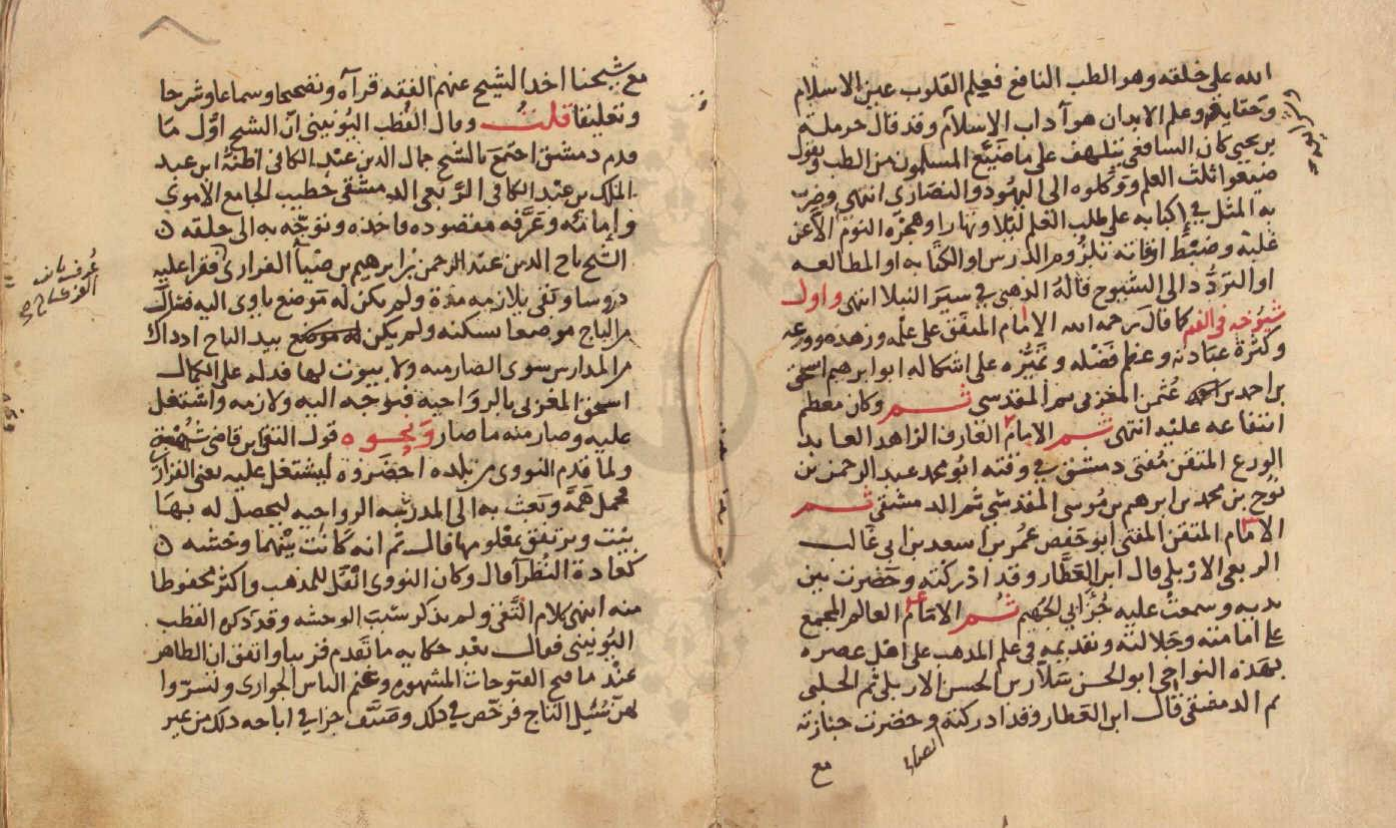 الله على خلقه وهو الطب النافع فعلم القلوب عين الاسلام
وحقايقه وعلم الابدان هو آداب الإسلام وقد قال حرملة
بن يحيى كان الشافعي يتلهف على ما ضيّع المسلمون من الطب ويقول
ضيعوا ثلث العلم ووكلوه الى اليهود والنصارى انتهى وضرب
به المثل في إكبابه على طلب العلم ليلا ونهارا وهجره النوم الا عن
غلبة وضبط اوقاته بلزوم الدرس او الكتابه او المطالعه
او التردد الى الشيوخ قاله الذهبي في سير النبلا انتهى واول
شيوخه في الفقه كما قال رحمه الله الامام المتفق على علمه وزهده وورعه
وكثرة عبادته وعظم فضله وتميزه على اشكاله ابو ابرهيم اسحق
بن احمد بن عثمن المغربي ثم المقدسي ثم وكان معظم
انتفاعه عليه انتهى ثم الامام العارف الزاهد العابد
الورع المتقن مفتى دمشق في وقته ابو محمد عبد الرحمن بن
نوح بن محمد بن ابرهيم بن موسى المقدسي ثم الدمشقى ثم
الامام المتقن المفتى ابو حفص عمر بن اسعد بن ابي غالب
الربعى الاربلي قال ابن العطار وقد ادركته وحضرت بين
يديه وسمعت عليه جزء ابي الجهم ثم الامام العالم المجمع
على امامته وجلالته وتقديمه في علم المذهب على اهل عصره
بهذه النواحي ابو الحسن سلار بن الحسن الاربلي ثم الحلبى
ثم الدمشقى قال ابن العطار وقد ادركته وحضرت جنازته
مع
مع شيخنا اخذ الشيخ عنهم الفقه قرآة وتصحيحا وسماعا وشرحا
وتعليقا قلت وقال القطب اليونيني انّ الشيخ اوّل ما
قدم دمشق اجتمع بالشيخ جمال الدين عبد الكافى اظنه ابن عبد
الملك بن عبد الكافى الربعى الدمشقى خطيب الجامع الاموى
وإمامه وعرّفه مقصوده فاخذه وتوجّه به الى حلقة
الشيخ تاج الدين عبد الرحمن بن ابرهيم بن ضيآ الفزارى فقرا عليه
دروسا وبقى يلازمه مدة ولم يكن له موضع ياوى اليه فسال
من التاج موضعا يسكنه ولم يكن بيد التاج اذ ذاك
من المدارس سوى الصارميه ولا بيوت لها فدله على الكمال
اسحق المغربى بالرواحية فتوجه اليه ولازمه واشتغل
عليه وصار منه ما صار ونحوه قول التقى ابن قاضى شهبة
ولما قدم النووى من بلده احضروه ليشتغل عليه يعنى الفزارى
فحمل همّه وبعث به الى المدرسه الرواحيه ليحصل له بها
بيت ويرتفق بمعلومها قال ثم انه كانت بينهما وحشه
كعادة النظرآ قال وكان النووى انقل للمذهب واكثر محفوظا
منه انتهى كلام التقى ولم يذكر سبب الوحشه وقد ذكره القطب
اليونينى فقال بعد حكايه ما تقدم قريبا واتفق ان الظاهر
عند ما فتح الفتوحات المشهوره وغنم الناس الجوارى وتسرّوا
بهن سئل التاج فرخص في ذلك وصنف جزا في اباحه ذلك من غير